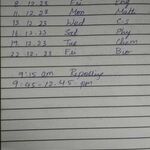 8 12.23 Fri Eng
11.12.23 Mon Math
13 12.23 Wed C.S
16 12.23 Sat Phy
19 12.23 Tue Chem
22 12.23 Fri Bio
9:15 am Reporting
9:45-12:45 pm